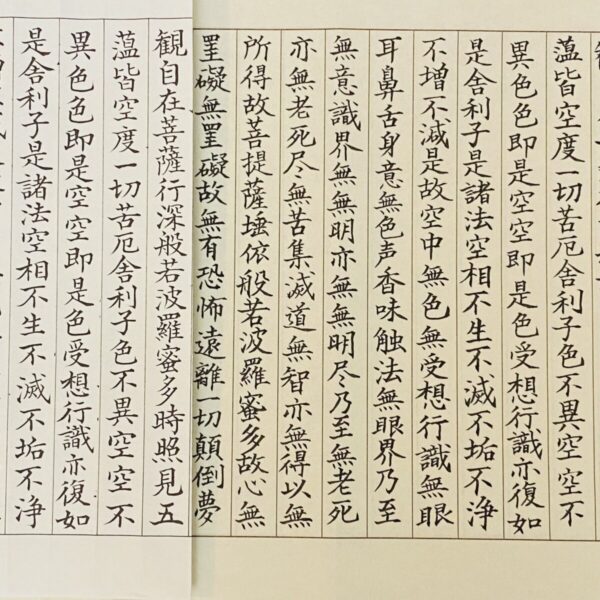 薀皆空度一切苦厄舎利子色不異空空不
異色色即是空空即是色受想行識亦復如
是舎利子是諸法空相不生不滅不垢不浄
不増不減是故空中無色無受想行識無眼
耳鼻舌身意無色声香味触法無眼界乃至
無意識界無無明亦無無明尽乃至無老死
亦無老死尽無苦集滅道無智亦無得以無
所得故菩提薩埵依般若波羅蜜多故心無
罣礙無罣礙故無有恐怖遠離一切顛倒夢
観自在菩薩行深般若波羅蜜多時照見五
薀皆空度一切苦厄舎利子色不異空空不
異色色即是空空即是色受想行識亦復如
是舎利子是諸法空相不生不滅不垢不浄